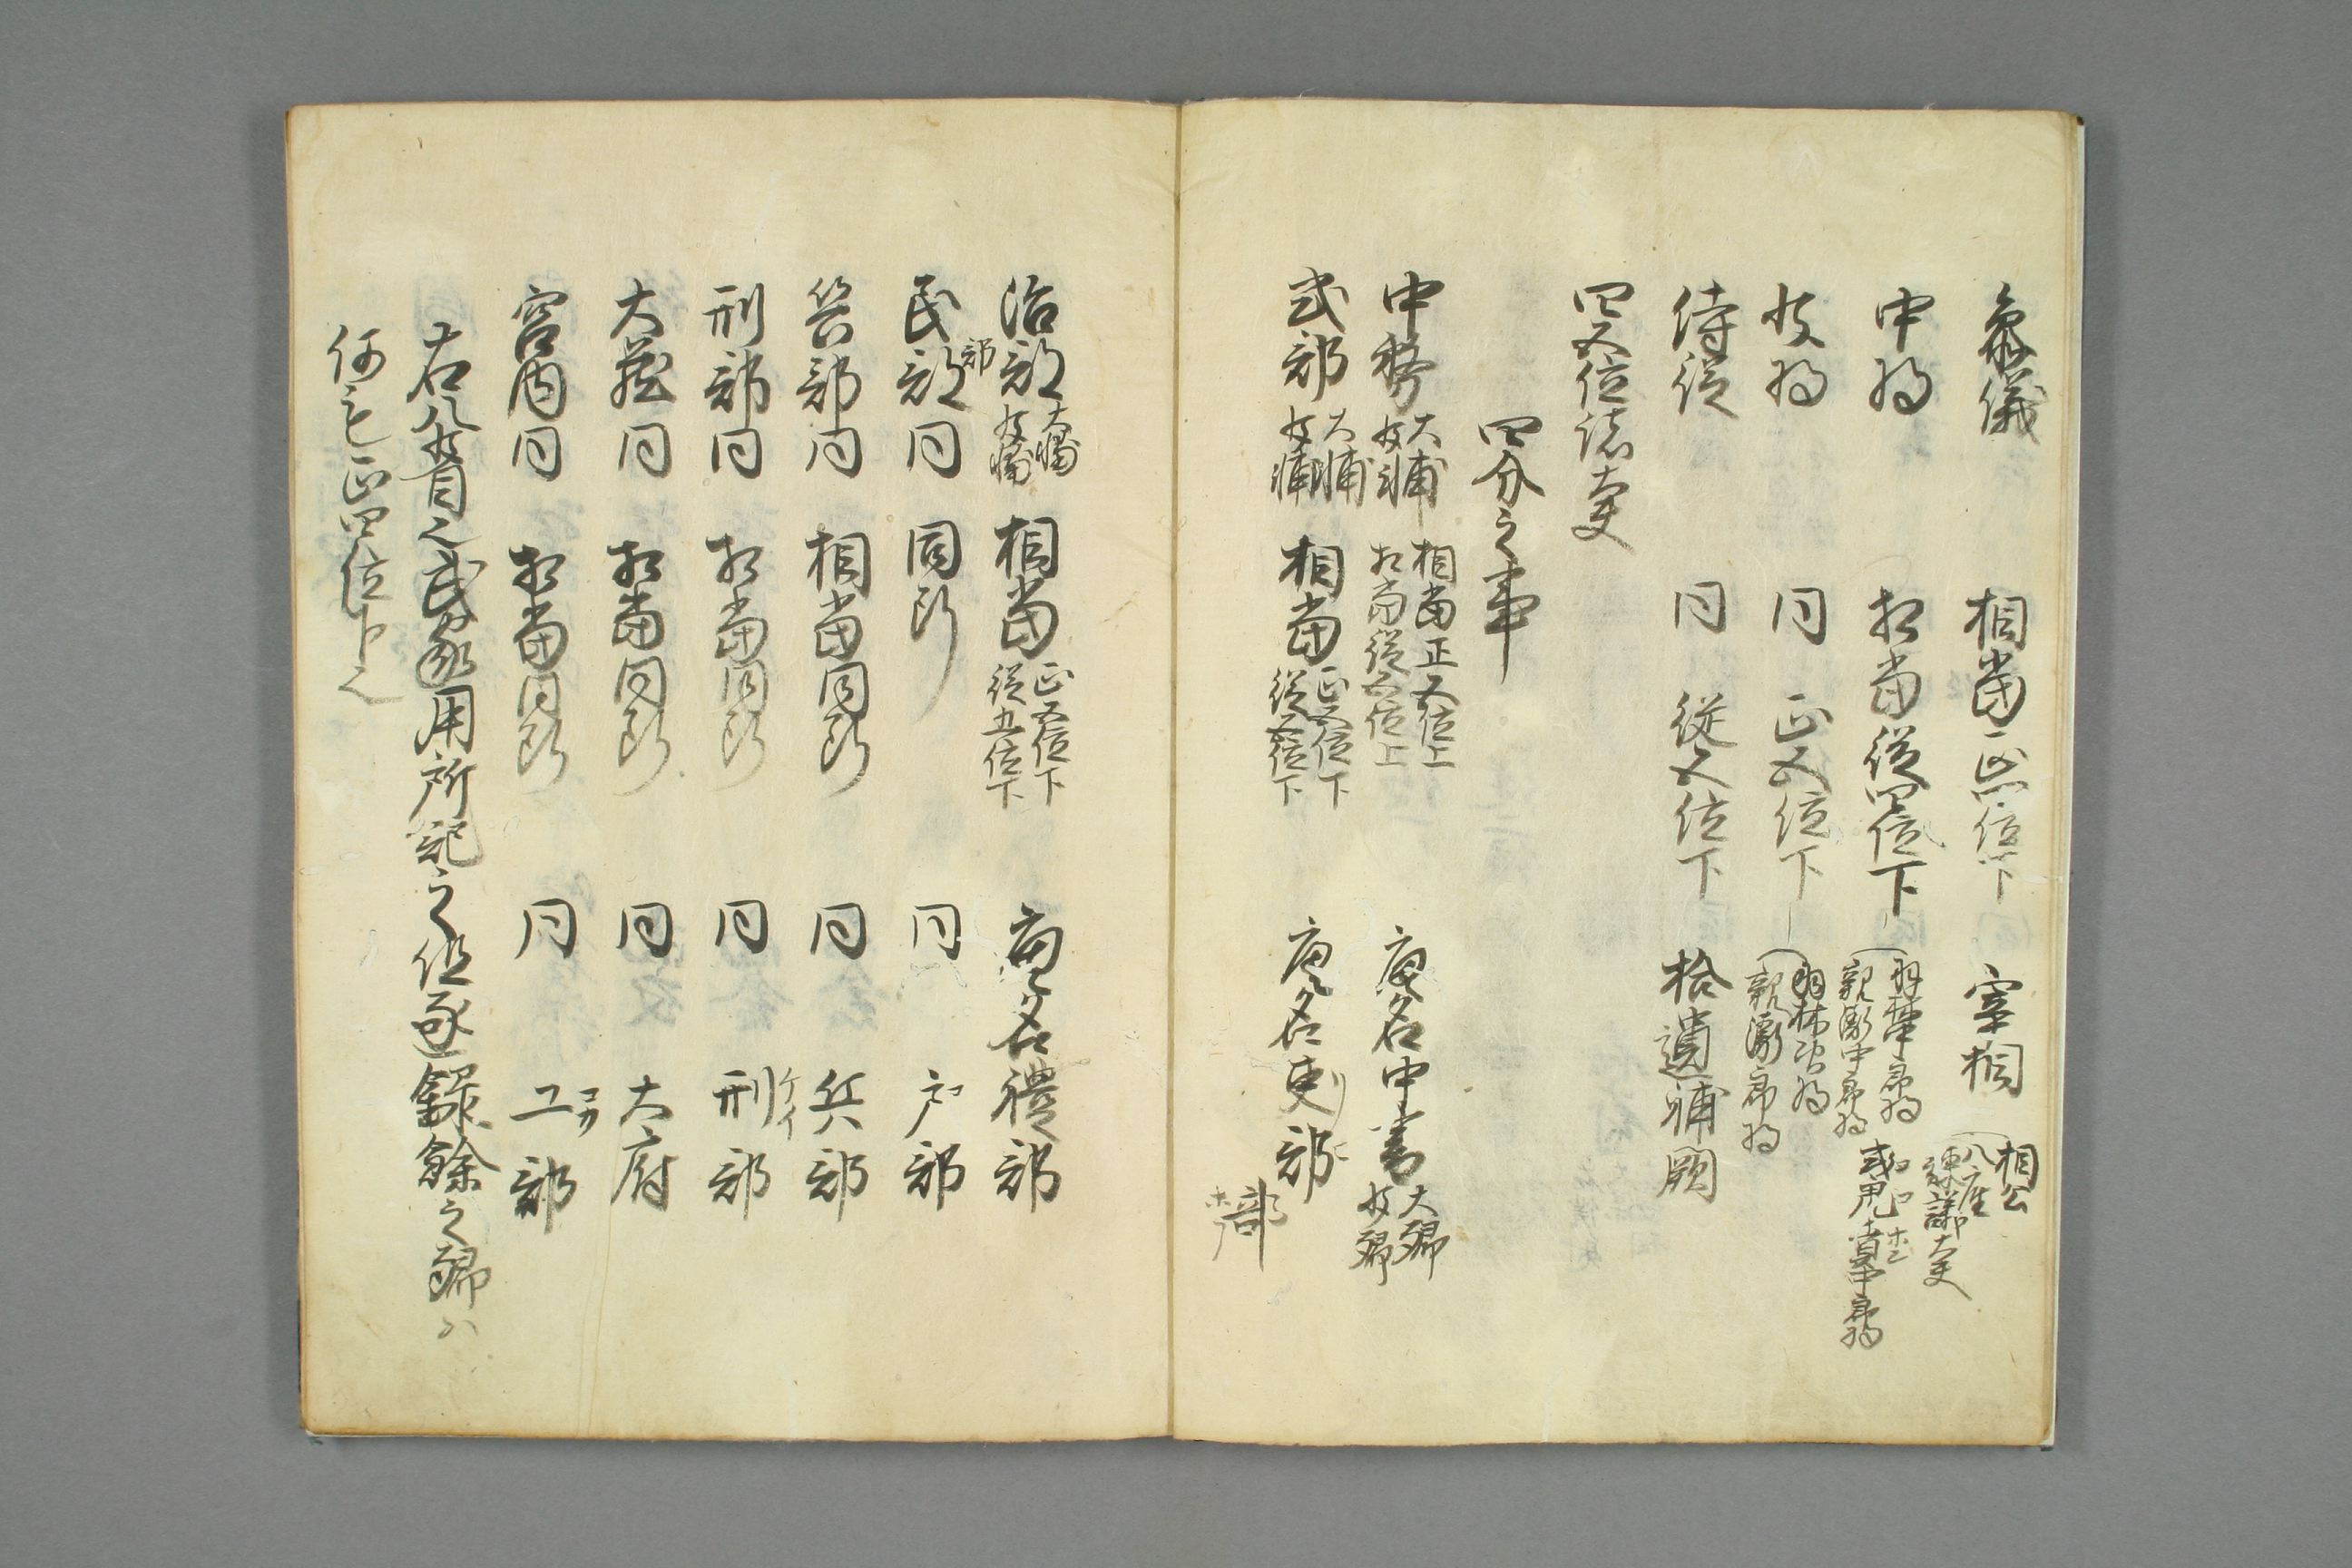 参儀 相當正四位下 宰相 相公 八座 諫議大夫
中将 相當従四位下 羽林中郎将 親衛中郎将 或用
少将 同 正五位下 羽林次将 親衛郎将
侍従 同 従五位下 拾遺補闕
四五位諸大夫
四分之事
中務 大輔 少輔 相當正五位上 相當従五位上 唐名中書 大卿 少卿
式部 大輔 少輔 相當 正五位下 従五位下 唐名吏部 部
治部 大輔 少輔 相當 正五位下 従五位下 唐名禮部
民部 部 同 同断 同 戸部
兵部 同 相當同断 同 兵部
刑部 同 相當同断 同 刑部 ケイ
大蔵 同 相當同断 同 大府
宮内 同 相當同断 同 工部 コウ
右八省自之武家用所記之位逐錄餘之卿ハ
何モ正四位下之